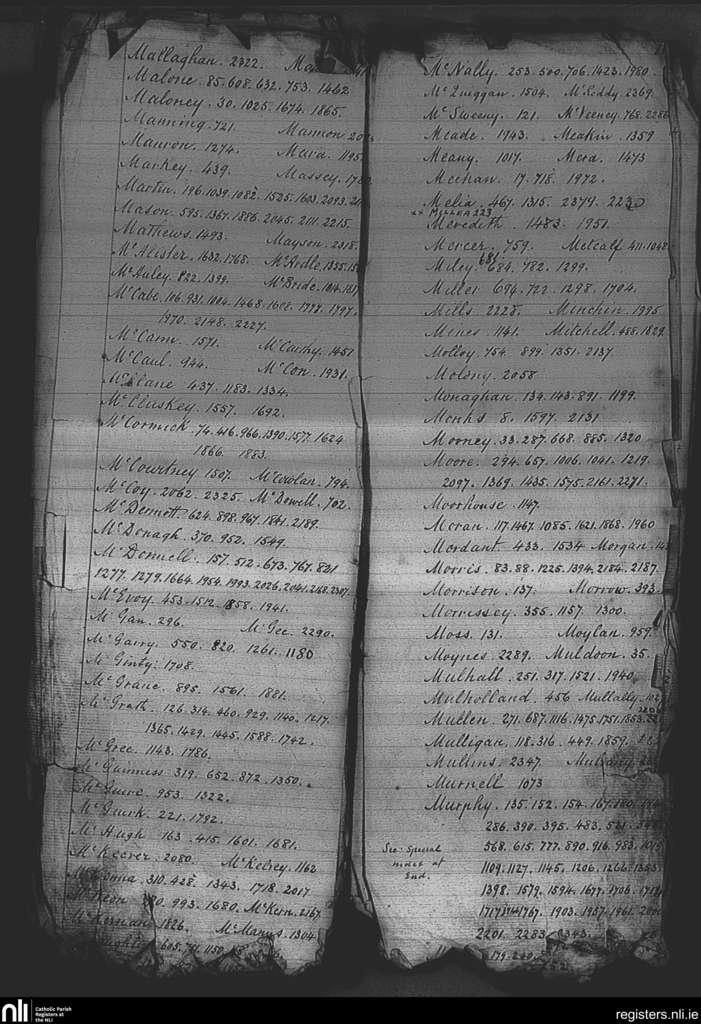 Mallaghan. 2322.
Malone. 85. 608. 632. 753. 1462
Maloney. 30. 1025. 1674. 1865.
Manning. 721. Mannion
Maunon. 1274. Mara. 1195
Markey. 439. Massey.
Martin. 196. 1039. 1082. 1525. 1603. 2093.
Mason. 595. 1367. 1886. 2045. 2111. 2215.
Mathews. 1493. Mayson. 2318.
McAlister. 1632. 1768. McArdle. 1355.
McAuley. 822. 1399. McBride.
McCabe. 116. 931. 1004. 1468. 1777. 1797.
1970. 2148. 2227.
McCann. 1571. McCarthy. 1451
McCaul. 944. McCon. 1931.
McClane 437. 1183. 1334.
McCluskey. 1557. 1692.
McCormick. 74. 416. 966. 1390. 1577. 1624
1866. 1883.
McCourtney 1507. 794.
McCoy. 2062. 2325. McDowell. 702.
McDermott 624. 898. 967. 1841. 2189.
McDonagh. 370. 952. 1549.
McDonnell. 157. 512. 673. 767. 831
1277. 1279. 1664. 1954. 1993. 2026. 2041.
McEvoy. 453. 1512. 1858. 1941.
McGan. 296. McGee. 2290.
McGarry. 550. 820. 1261. 1180
McGinty. 1708.
McGrane. 895. 1561. 1881.
McGrath. 126. 314. 460. 929. 1140. 1217.
1365. 1429. 1445. 1588. 1742.
McGree. 1143. 1786.
McGuinness 319. 652. 872. 1350.
McGuire. 953. 1322.
McGurk. 221. 1792.
McHugh 163. 415. 1601. 1681.
McKeever. 2080. McKelvey. 1162
310. 428. 1343. 1718. 2017
McKeon 993. 1680. McKern. 2167
McKernan. 1826. McManus. 1304.
605.
McNally. 253. 500. 706. 1423. 1980.
McQuiggan. 1504. McEddy. 2369.
McSweeny. 121. McVeeney. 768. 2286
Meade. 1943. Meakin. 1359
Meany. 1017. Mera. 1473
Meehan. 17. 718. 1972.
Melia. 467. 1315. 2379.
Meredith. 1483. 1951.
Mercer. 759. Metcalf 411. 1048
681
Miley. 684. 782. 1299.
Miller 694. 722. 1298. 1704.
Mills. 2228. Minchin. 1995
Mines. 1141. Mitchell. 488. 1829
Molloy. 754. 899. 1351. 2137.
Molony. 2058
Monaghan. 134. 143. 891. 1199.
Monks 8. 1597. 2131
Mooney. 33. 287. 668. 885. 1320
Moore. 294. 657. 1006. 1041. 1219.
2097. 1369. 1435. 1575. 2161. 2271.
Moorhouse. 1147.
Moran. 117. 1467. 1085. 1621. 1868. 1960
Mordant. 433. 1534 Morgan.
Morris. 83. 88. 1225. 1394. 2184. 2187.
Morrison. 137. Morrow. 393
Morrissey. 355. 1157. 1300.
Moss. 131. Moylan. 959.
Moynes. 2289. Muldoon. 35.
Mulhall. 251. 317. 1521. 1940.
Mulholland. 456 Mullally.
Mullen. 271. 687. 1116. 1475. 1751. 1853.
Mulligan. 118. 316. 449. 1859.
Mullins. 2347.
Murnell 1073
Murphy. 135. 152. 154. 167.
286. 390. 395. 483. 531.
See Special
index at
End.
568. 615. 777. 890. 916. 983.
1109. 1127. 1145. 1206. 1266.
1398. 1579. 1594. 1677. 1706.
1767. 1903. 1957. 1961.
2201. 2283
nli Catholic Parish
Registers at
the NLI
registers.nli.ie